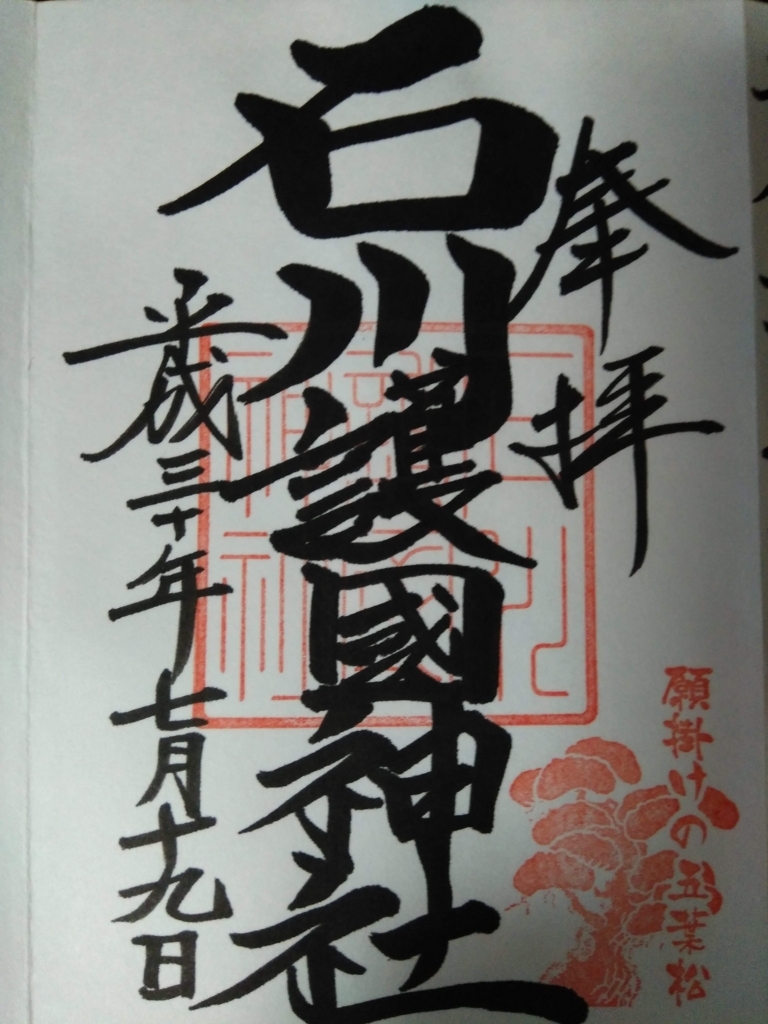 奉拝
願掛けの五葉松
石川護國神社
平成三十年七月十九日